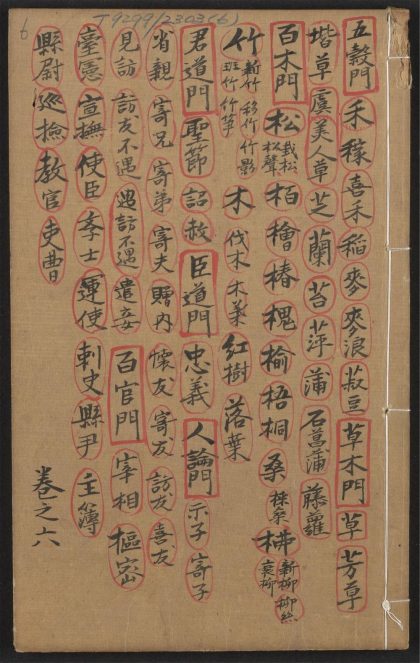 T9299/2303(6)
6
五穀門 禾稼 喜禾 稻 麥 麥浪 菽豆 草木門 草 芳草
堦草 虞美人草 芝 蘭 苔 萍 蒲 石菖蒲 藤蘿
百木門 松 栽松 松聲 栢 檜 椿 槐 榆 梧桐 桑 採桑 柳 新柳 柳絲 衰柳
竹 新竹 移竹 竹影 班竹 竹笋 木 伐木 木葉 紅樹 落葉
君道門 聖節 詔赦 臣道門 忠義 人論門 示子 寄子
省親 寄兄 寄弟 寄夫 贈內 懷友 寄友 訪友 喜友
見訪 訪友不遇 遇訪不遇 遣妾 百官門 宰相 樞密
臺憲 宣撫 使臣 李士 運使 刺史 縣尹 主簿
縣尉 巡撿 教官 吏曹
卷之六